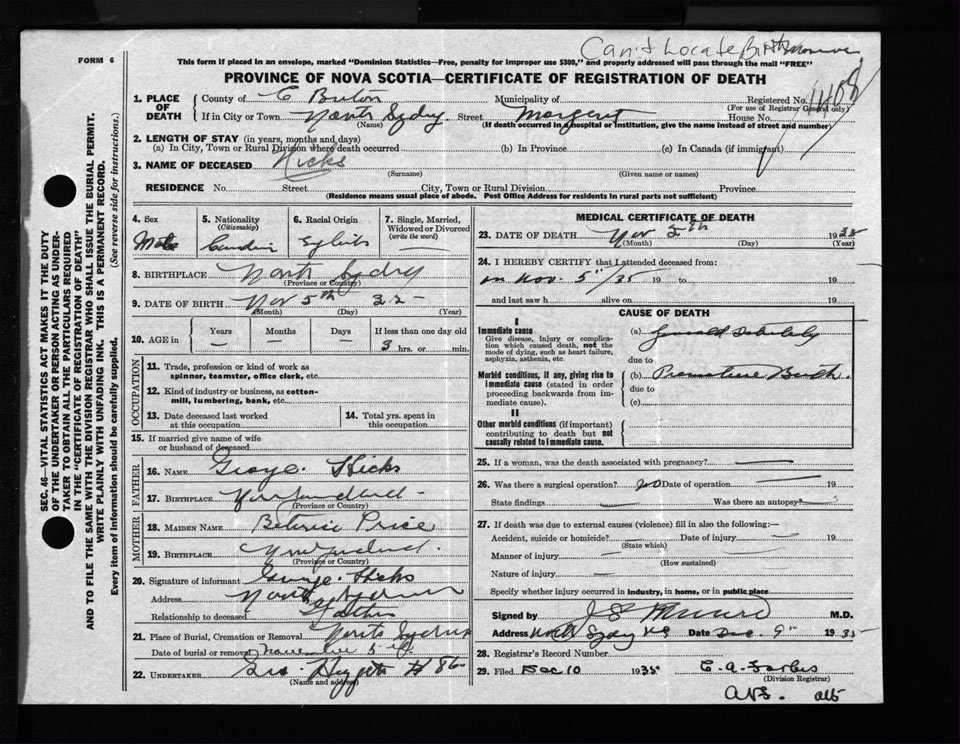 Can't Locate Birth
FORM 6
This form if placed in an envelope, marked "Dominion Statistics—Free, penalty for improper use $300," and properly addressed will pass through the mail "FREE"
PROVINCE OF NOVA SCOTIA—CERTIFICATE OF REGISTRATION OF DEATH
SEC. 46—VITAL STATISTICS ACT MAKES IT THE DUTY
OF THE UNDERTAKER OR PERSON ACTING AS UNDER-
TAKER TO OBTAIN ALL THE PARTICULARS REQUIRED
IN THE "CERTIFICATE OF REGISTRATION OF DEATH"
AND TO FILE THE SAME WITH THE DIVISION REGISTRAR WHO SHALL ISSUE THE BURIAL PERMIT.
WRITE PLAINLY WITH UNFADING INK. THIS IS A PERMANENT RECORD.
Every item of information should be carefully supplied. (See reverse side for instructions.)
1. PLACE OF DEATH
County of C Breton Municipality of Registered No.
(For use of Registrar General only)
If in City or Town North Sydney Street House No.
(Name) (If death occurred in a hospital or institution, give the name instead of street and number)
2. LENGTH OF STAY (in years, months and days)
(a) In City, Town or Rural Division where death occurred (b) In Province (c) In Canada (if immigrant)
3. NAME OF DECEASED Hicks
(Surname) (Given name or names)
RESIDENCE No. Street City, Town or Rural Division Province
(Residence means usual place of abode. Post Office Address for residents in rural parts not sufficient)
4. Sex 5. Nationality (Citizenship) 6. Racial Origin 7. Single, Married, Widowed or Divorced (write the word)
Male
8. BIRTHPLACE North Sydney
(Province or Country)
9. DATE OF BIRTH Nov 5th
(Month) (Day) (Year)
10. AGE in Years Months Days If less than one day old
— — — 3 hrs. or min.
OCCUPATION
11. Trade, profession or kind of work as
spinner, teamster, office clerk, etc.
12. Kind of industry or business, as cotton-
mill, lumbering, bank, etc.
13. Date deceased last worked
at this occupation
14. Total yrs. spent in
this occupation
15. If married give name of wife
or husband of deceased
FATHER
16. NAME George Hicks
17. BIRTHPLACE Newfoundland
(Province or Country)
MOTHER
18. MAIDEN NAME Price
19. BIRTHPLACE Newfoundland.
(Province or Country)
20. Signature of informant George Hicks
Address North Sydney
Relationship to deceased Father
21. Place of Burial, Cremation or Removal North Sydney
Date of burial or removal November 5
22. UNDERTAKER Geo
(Name and address)
MEDICAL CERTIFICATE OF DEATH
23. DATE OF DEATH Nov 5th 19
(Month) (Day) (Year)
24. I HEREBY CERTIFY that I attended deceased from:
on Nov. 5"/35 19 to 19
and last saw h alive on 19
CAUSE OF DEATH
I
Immediate cause
Give disease, injury or complica-
tion which caused death, not the
mode of dying, such as heart failure,
asphyxia, asthenia, etc.
(a) General Debility
due to
Morbid conditions, if any, giving rise to
immediate cause (stated in order
proceeding backwards from im-
mediate cause).
(b) Premature Birth.
due to
(c)
II
Other morbid conditions (if important)
contributing to death but not
causally related to immediate cause.
25. If a woman, was the death associated with pregnancy?
26. Was there a surgical operation? no Date of operation 19
State findings Was there an autopsy?
27. If death was due to external causes (violence) fill in also the following:—
Accident, suicide or homicide? Date of injury 19
(State which)
Manner of injury
(How sustained)
Nature of injury
Specify whether injury occurred in industry, in home, or in public place
Signed by M.D.
Address North Sydney NS Date Dec. 9" 1935
28. Registrar's Record Number
29. Filed Dec 10 1935 C. A. Forbes
(Division Registrar)